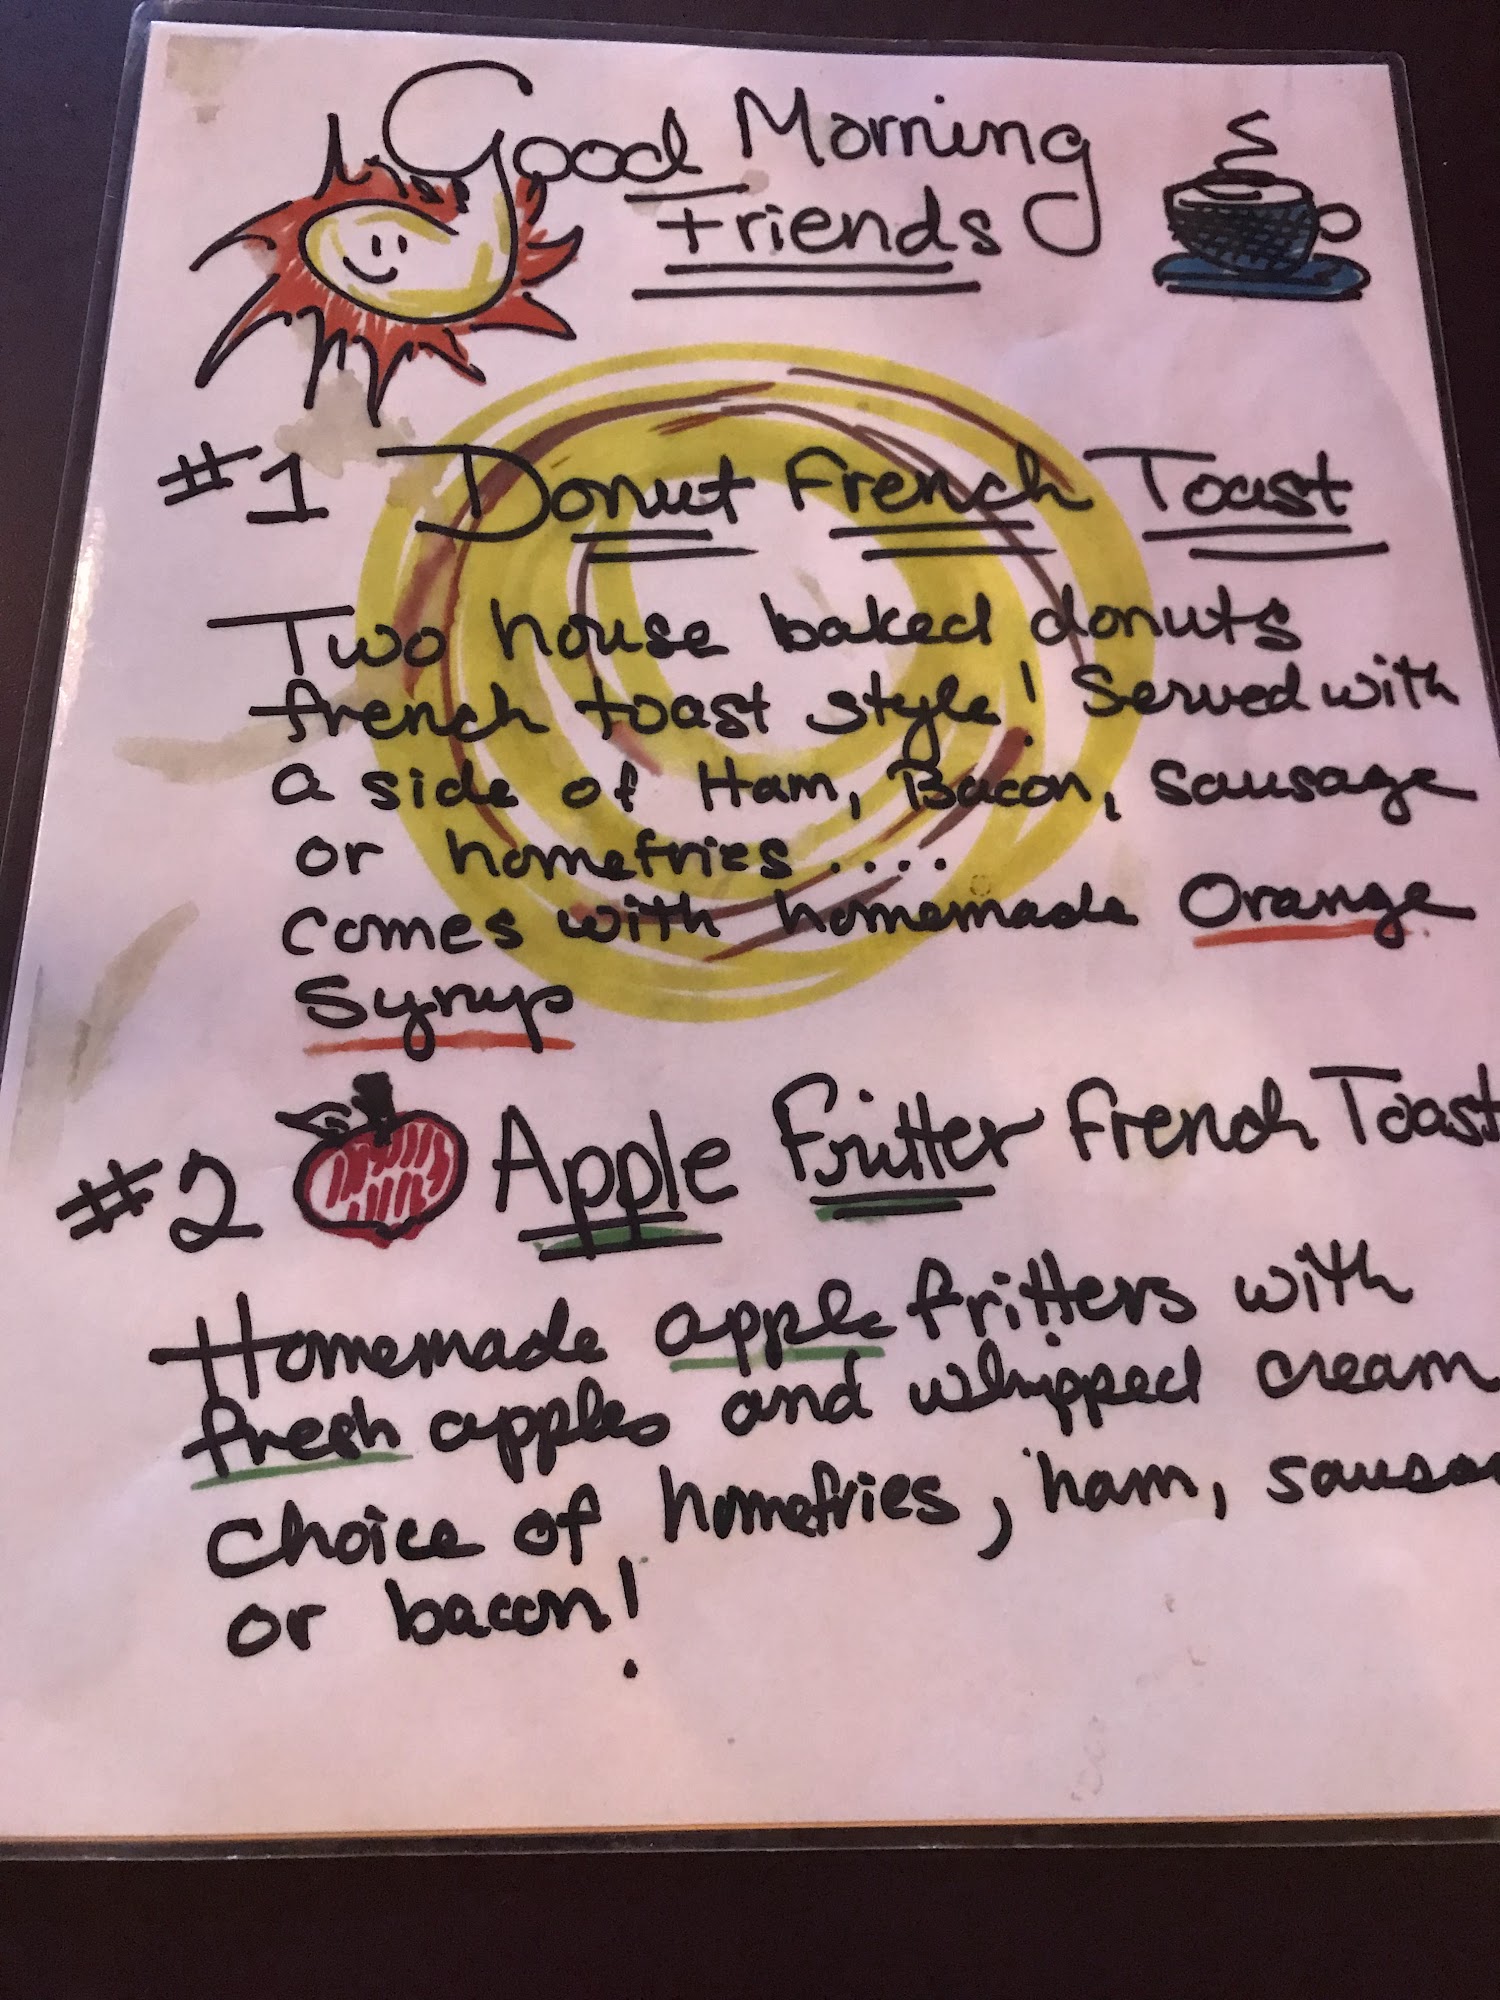 Good Morning
Friends
#1 Donut French Toast
Two house baked donuts
french toast style! Served with
a side of Ham, Bacon, Sausage
or homefries ....
comes with homemade Orange
Syrup
#2 Apple Fritter French Toast
Homemade apple fritters with
fresh apples and whipped cream
choice of homefries, ham, sausa
or bacon!